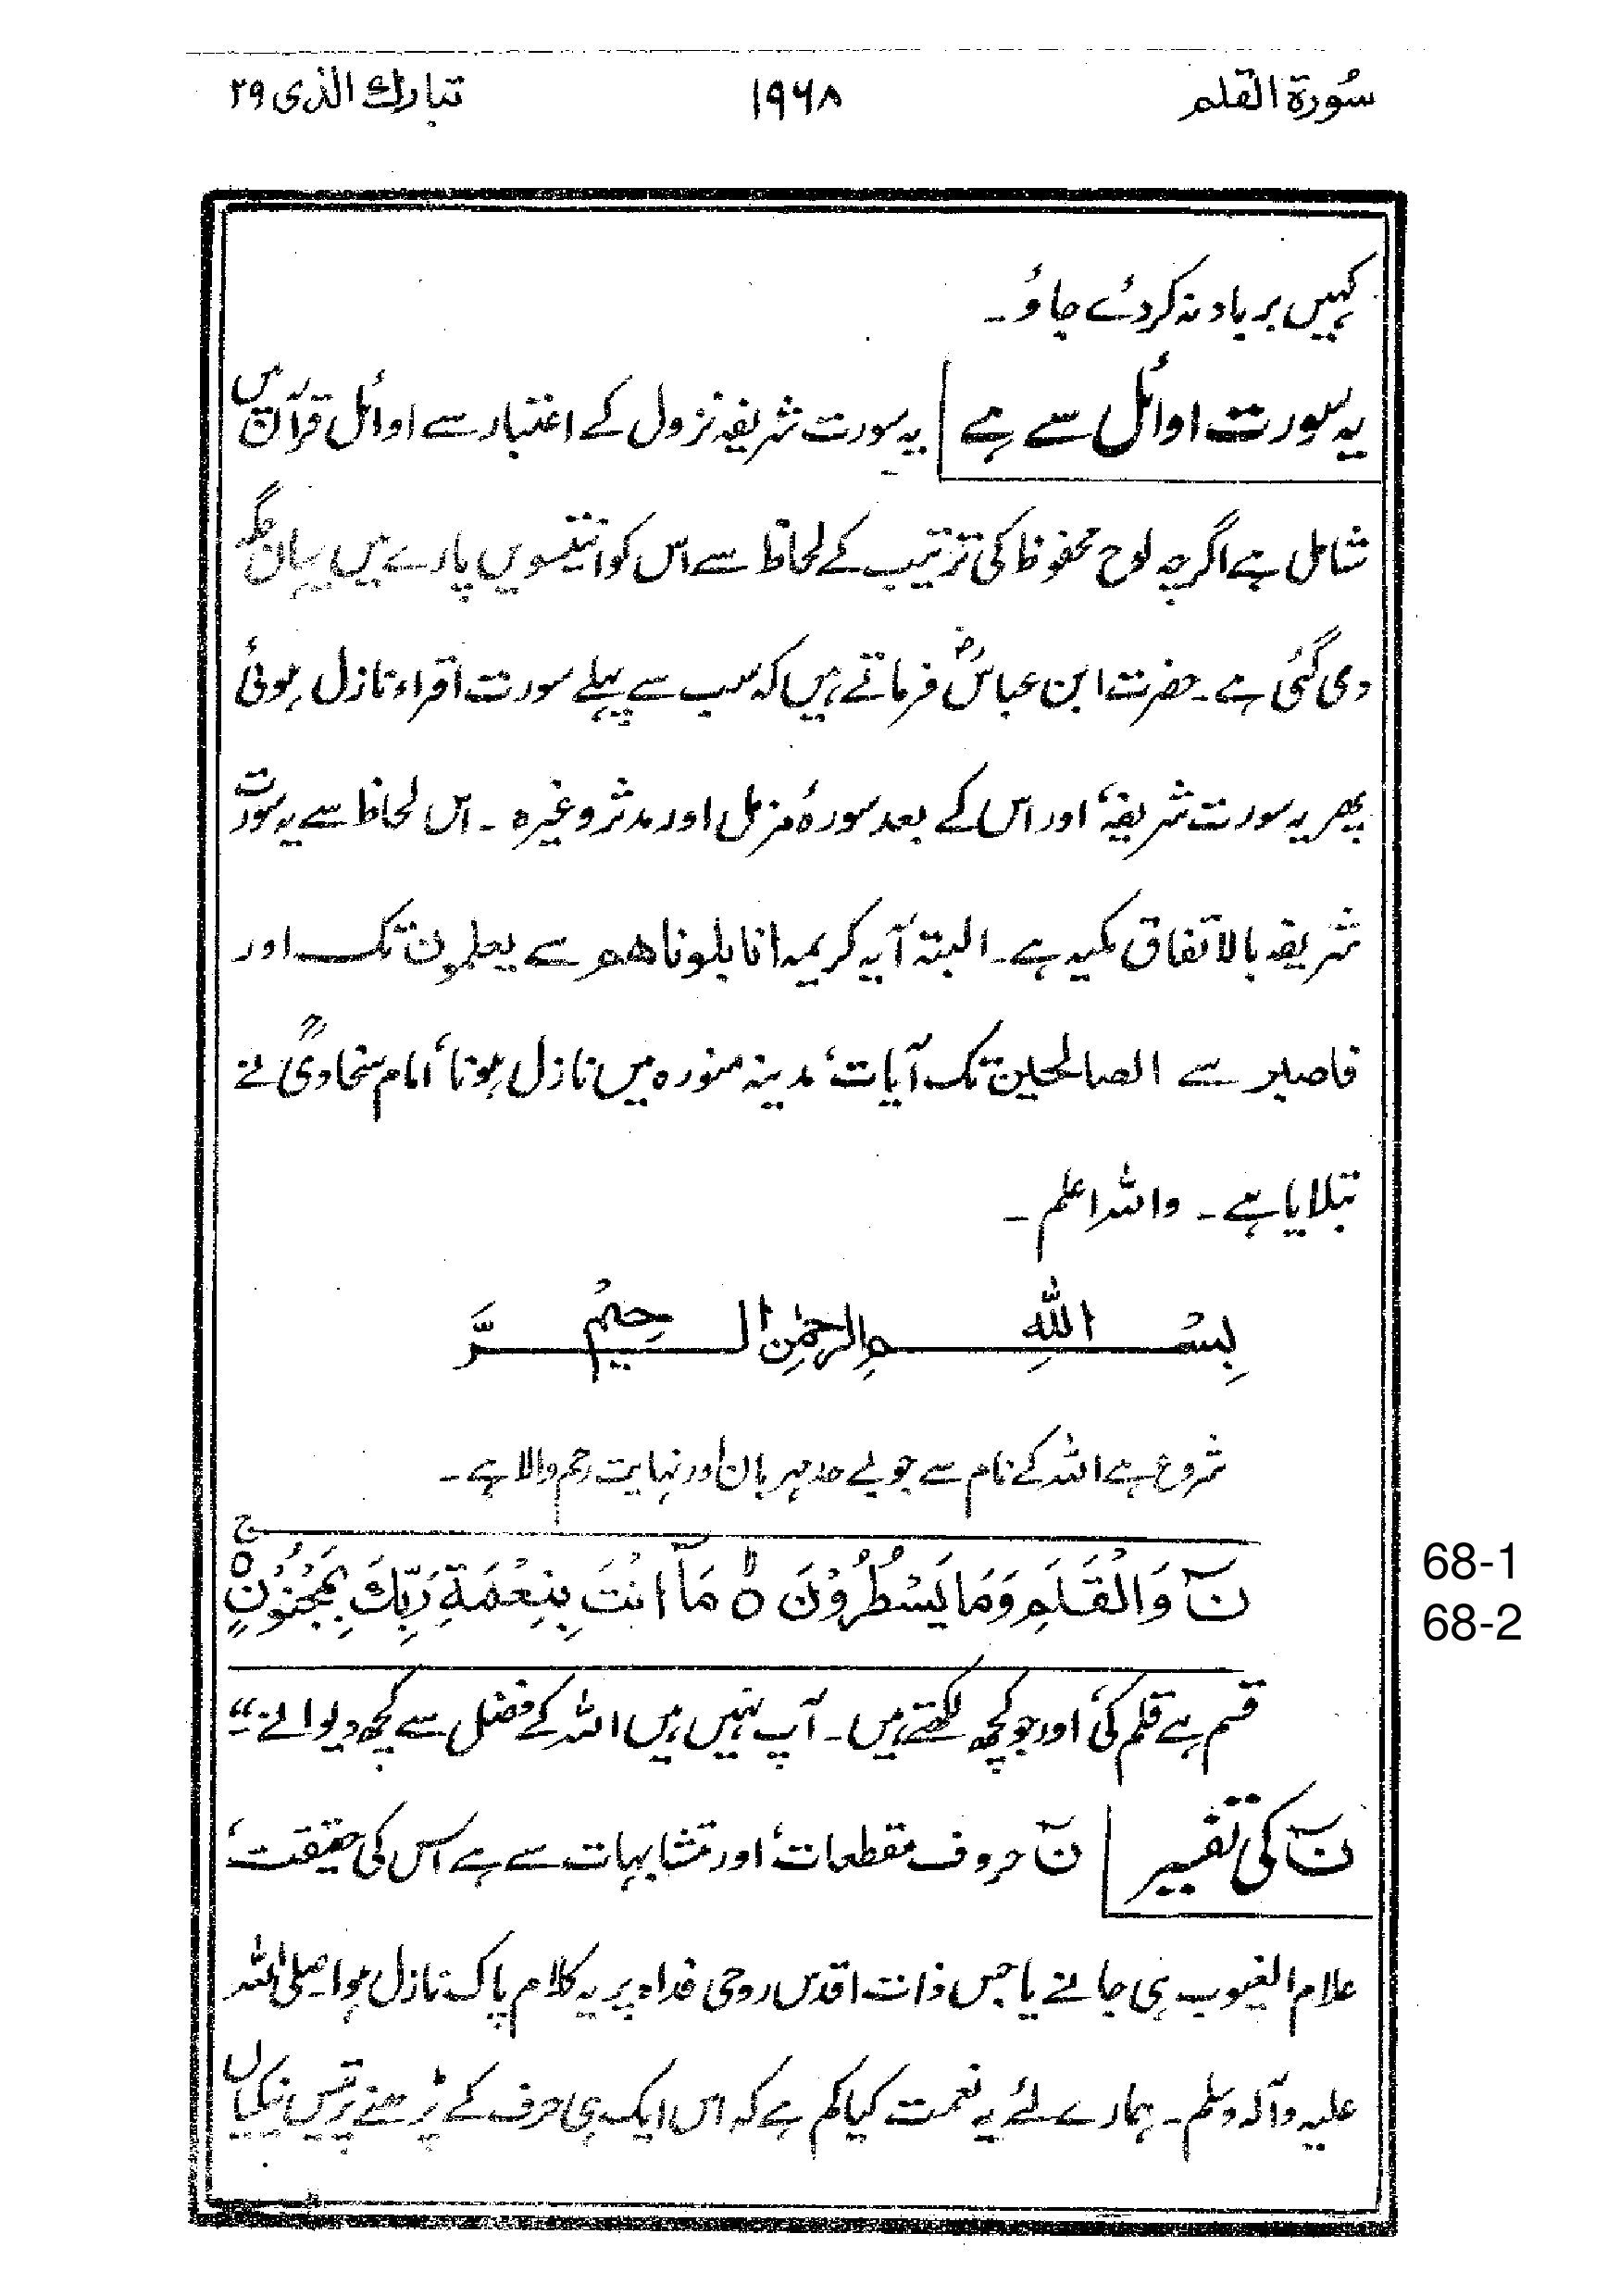 سُورة القلم ۱۹۶۸ تبارك الذی ۲۹
کہیں برباد نہ کردئے جاؤ۔
یہ سورت اوائل سے ہے یہ سورت شریفہ نزول کے اعتبار سے اوائل قرآن میں
شامل ہے اگرچہ لوح محفوظ کی ترتیب کے لحاظ سے اس کو انتیسویں پارے میں یہاں جگہ
دی گئی ہے۔ حضرت ابن عباسؓ فرماتے ہیں کہ سب سے پہلے سورت اقراء نازل ہوئی
پھر یہ سورت شریفہ، اور اس کے بعد سورۂ مزمل اور مدثر وغیرہ ۔ اس لحاظ سے یہ سورت
شریفہ بالاتفاق مکیہ ہے۔ البتہ آیہ کریمہ انا بلوناهم سے یعلمون تک اور
فاصبر سے الصالحین تک آیات، مدینہ منورہ میں نازل ہونا، امام سخاویؒ نے
بتلایا ہے۔ واللہ اعلم۔
بِسْمِ اللهِ الرَّحْمٰنِ الرَّحِيْمِ
شروع ہے اللہ کے نام سے جو بے حد مہربان اور نہایت رحم والا ہے۔
نٓ وَالْقَلَمِ وَمَا يَسْطُرُوْنَ ۝ۙ مَآ اَنْتَ بِنِعْمَةِ رَبِّكَ بِمَجْنُوْنٍ ۝ۚ
68-1
68-2
قسم ہے قلم کی، اور جو کچھ لکھتے ہیں۔ آپ نہیں ہیں اللہ کے فضل سے کچھ دیوانے“
نٓ کی تفسیر نٓ حروف مقطعات، اور متشابہات سے ہے اس کی حقیقت،
علام الغیوب ہی جانے یا جس ذات اقدس روحی فداہ پر یہ کلام پاک نازل ہوا صلی اللہ
علیہ وآلہ وسلم۔ ہمارے لئے یہ نعمت کیا کم ہے کہ اس ایک ہی حرف کے پڑھنے پر تیس نیکیاں